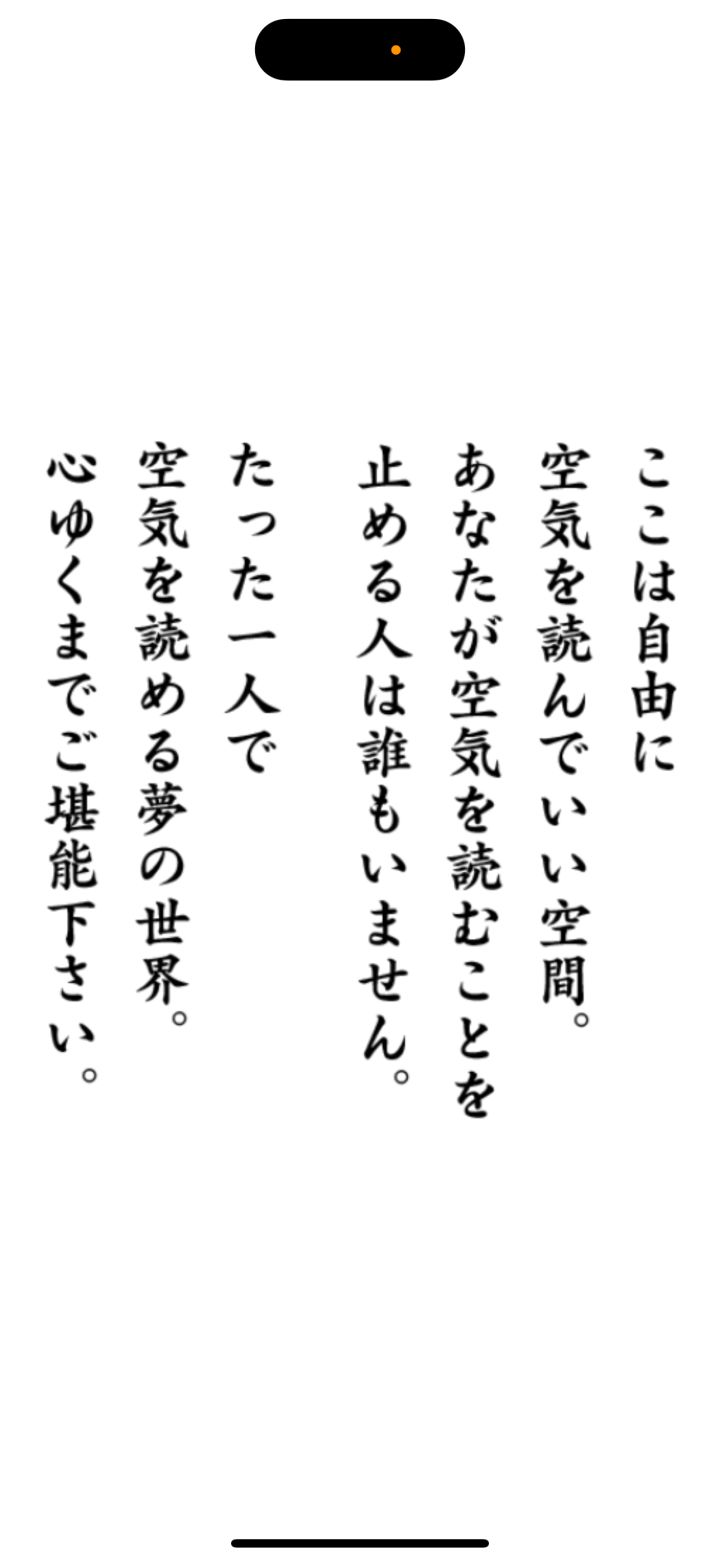 ここは自由に
空気を読んでいい空間。
あなたが空気を読むことを
止める人は誰もいません。
たった一人で
空気を読める夢の世界。
心ゆくまでご堪能下さい。